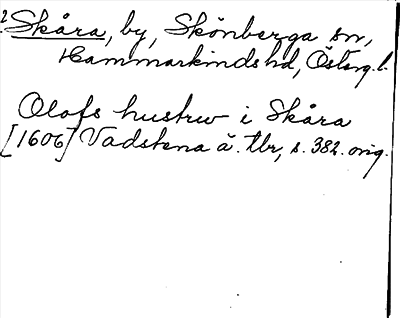 2 Skåra, by, Skönberga sn,
Hammarkinds hd, Östergl.
Olofs hustrw i Skåra
[1606] Vadstena ä. tbr, s. 382. orig.